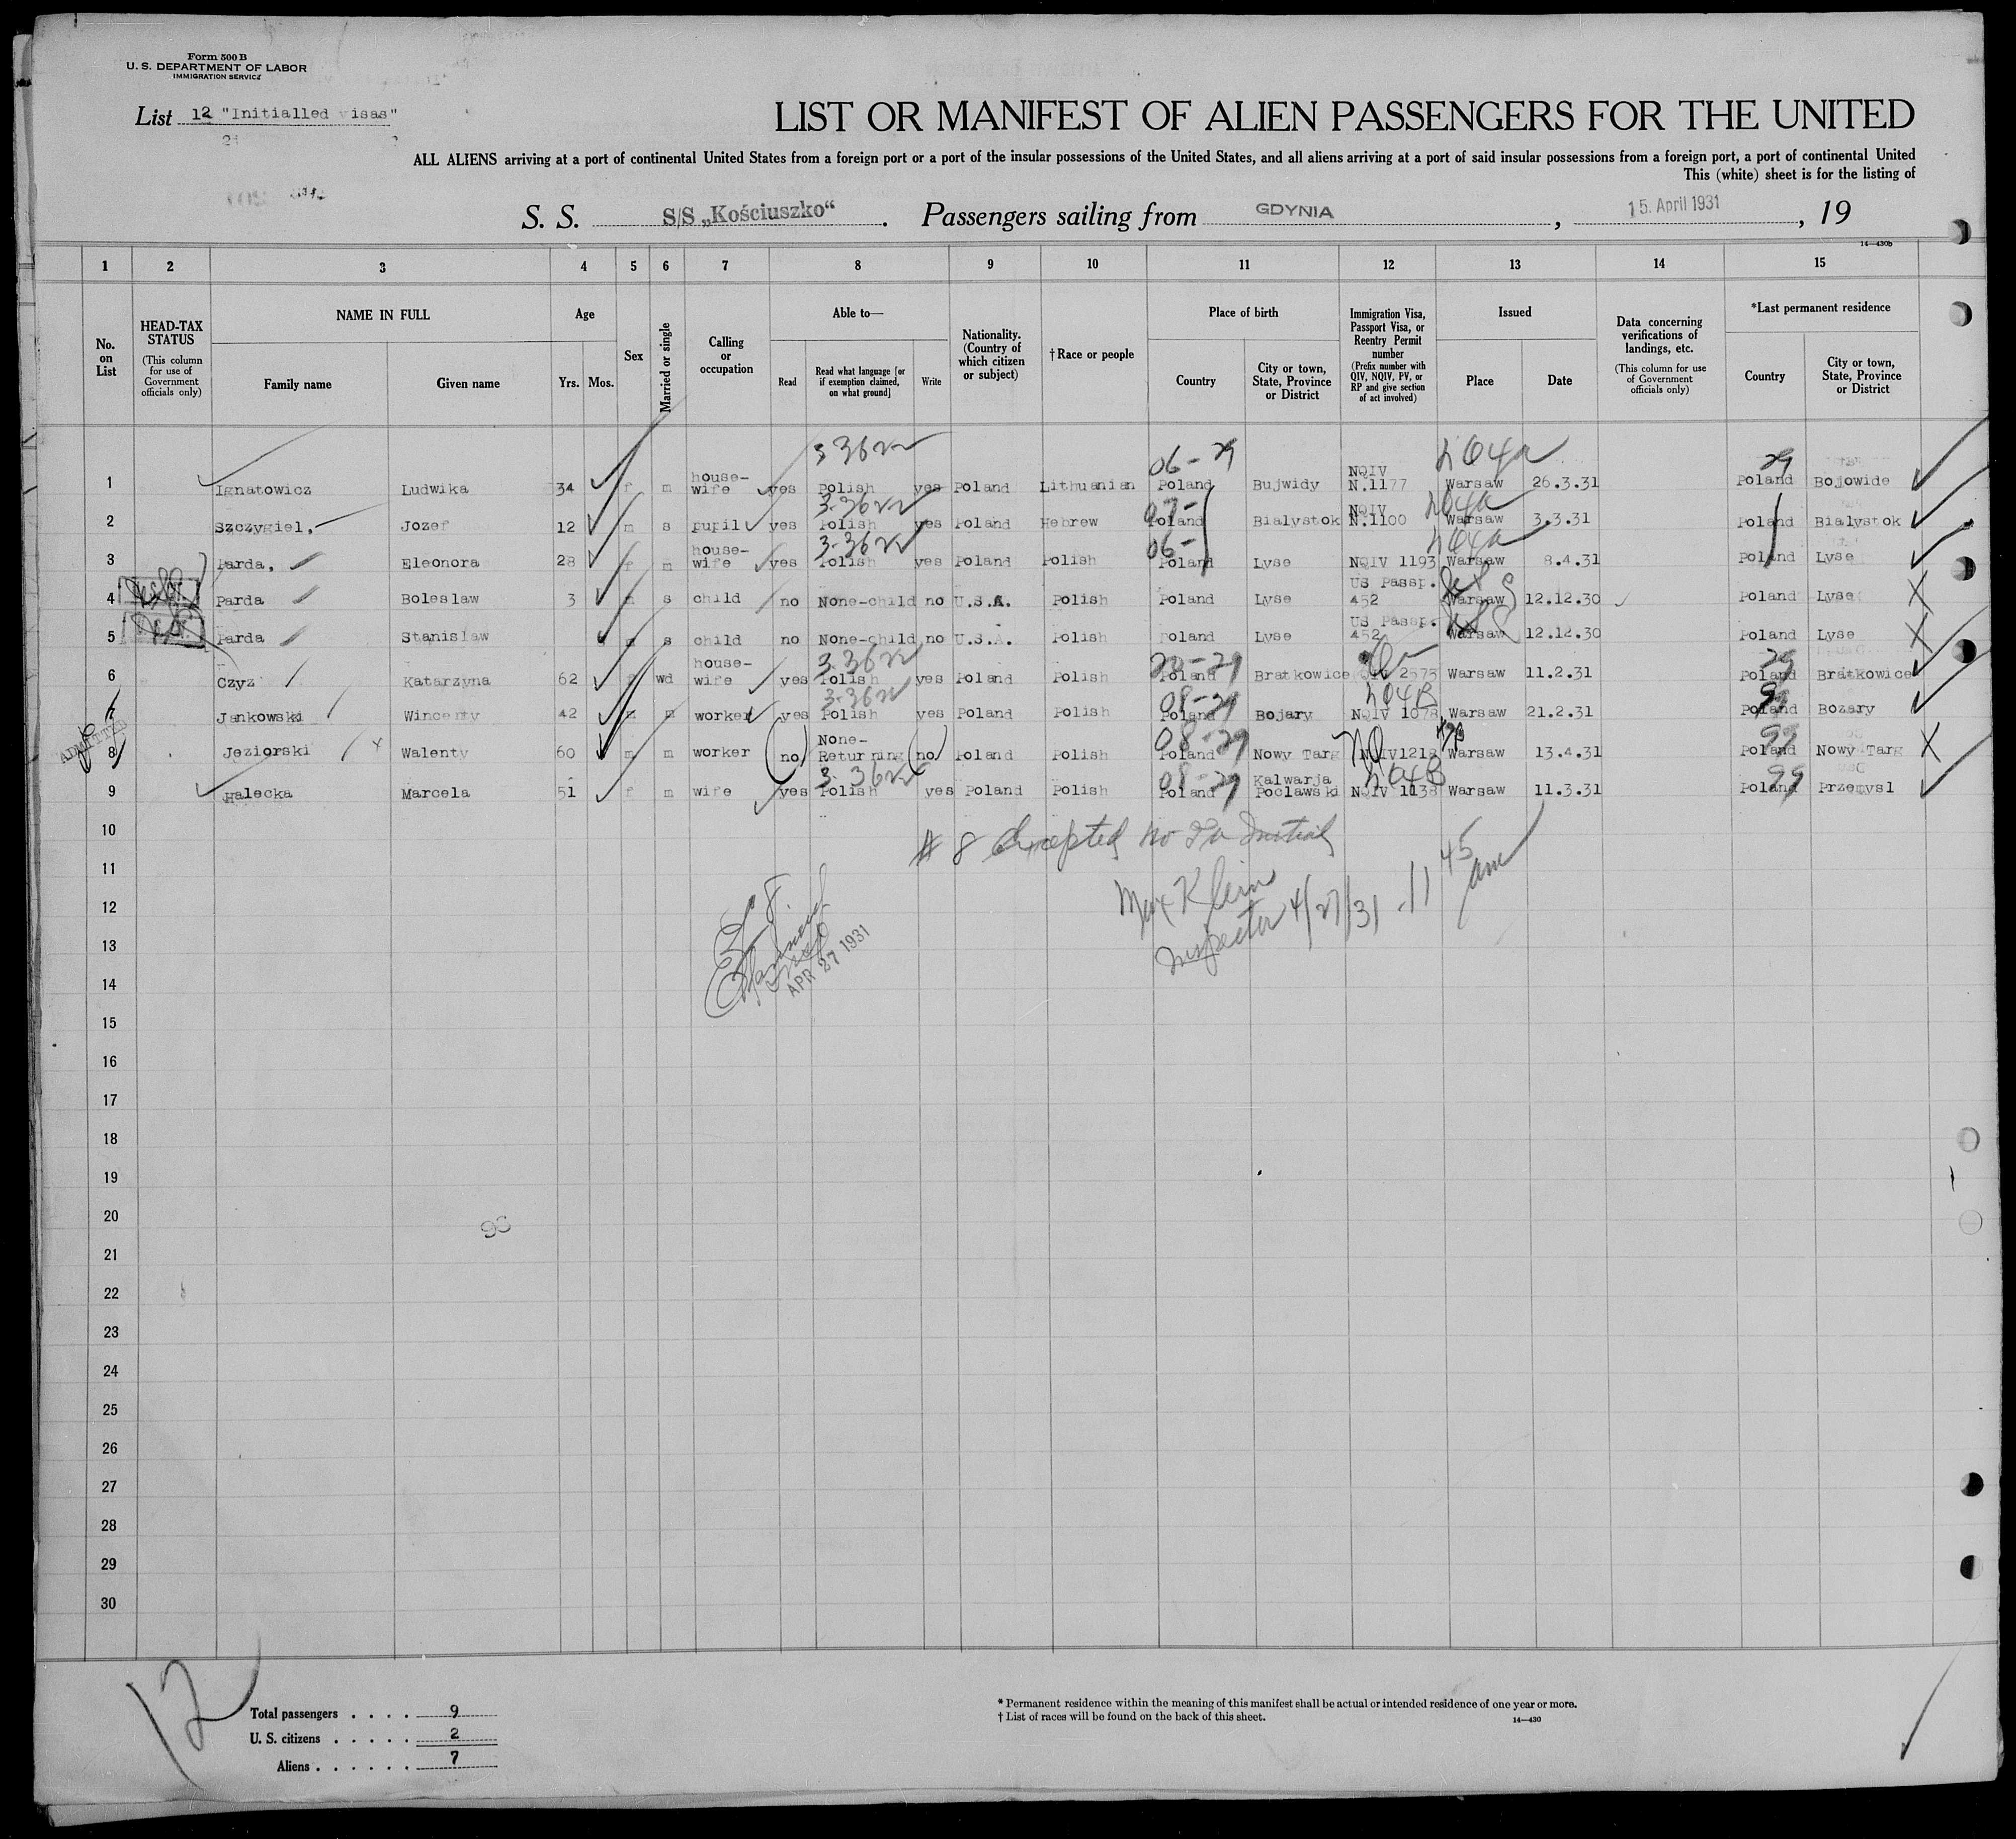 Form 500 B
U. S. DEPARTMENT OF LABOR
IMMIGRATION SERVICE
List 12 "Initialled visas"
LIST OR MANIFEST OF ALIEN PASSENGERS FOR THE UNITED
ALL ALIENS arriving at a port of continental United States from a foreign port or a port of the insular possessions of the United States, and all aliens arriving at a port of said insular possessions from a foreign port, a port of continental United
This (white) sheet is for the listing of
S. S. S/S „Kościuszko“. Passengers sailing from GDYNIA, 15. April 1931, 19
14—430b
1 2 3 4 5 6 7 8 9 10 11 12 13 14 15
No. on List
HEAD-TAX STATUS (This column for use of Government officials only)
NAME IN FULL
Family name Given name
Age
Yrs. Mos.
Sex
Married or single
Calling or occupation
Able to—
Read
Read what language [or if exemption claimed, on what ground]
Write
Nationality. (Country of which citizen or subject)
† Race or people
Place of birth
Country
City or town, State, Province or District
Immigration Visa, Passport Visa, or Reentry Permit number (Prefix number with QIV, NQIV, PV, or RP and give section of act involved)
Issued
Place Date
Data concerning verifications of landings, etc. (This column for use of Government officials only)
*Last permanent residence
Country
City or town, State, Province or District
3 3622 06-29 29
1 Ignatowicz Ludwika 34 f m house-wife yes Polish yes Poland Lithuanian Poland Bujwidy NQIV N.1177 Warsaw 26.3.31 Poland Bojowide
3-3622
2 Szczygiel, Jozef 12 m s pupil yes Polish yes Poland Hebrew Poland Bialystok NQIV N.1100 Warsaw 3.3.31 Poland Bialystok
3-3622 06-
3 Parda, Eleonora 28 f m house-wife yes Polish yes Poland Polish Poland Lyse NQIV 1193 Warsaw 8.4.31 Poland Lyse
4 Parda Boleslaw 3 s child no None-child no U.S.A. Polish Poland Lyse US Passp. 452 Warsaw 12.12.30 Poland Lyse
5 Parda Stanislaw s child no None-child no U.S.A. Polish Poland Lyse US Passp. 452 Warsaw 12.12.30 Poland Lyse
3 3622 29
6 Czyz Katarzyna 62 wd house-wife yes Polish yes Poland Polish Poland Bratkowice 2573 Warsaw 11.2.31 Poland Bratkowice
3-3622 08-29
7 Jankowski Wincenty 42 m m worker yes Polish yes Poland Polish Poland Bojary NQIV 1078 Warsaw 21.2.31 Poland Bozary
08-29 99
8 Jeziorski Walenty 60 m m worker no None-Returning no Poland Polish Poland Nowy Targ NQIV1218 Warsaw 13.4.31 Poland Nowy Targ
ADMITTED
3 3622 08-29 99
9 Halecka Marcela 51 f m wife yes Polish yes Poland Polish Poland Kalwarja Poclawski NQIV 1138 Warsaw 11.3.31 Poland Przemysl
10
# 8
11
Max Klein
12
Inspector 4/27/31 - 11 45 am
13
APR 27 1931
14
15
16
17
18
19
20
21
22
23
24
25
26
27
28
29
30
12
Total passengers . . . . 9
U. S. citizens . . . . . 2
Aliens . . . . . . 7
* Permanent residence within the meaning of this manifest shall be actual or intended residence of one year or more.
† List of races will be found on the back of this sheet.
14—430